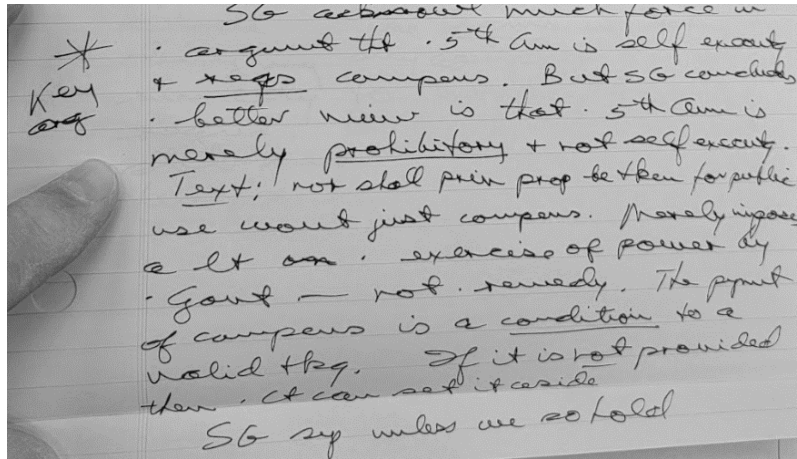 SG acknowl much force in
· argument tht · 5th Am is self executg
Key + reqs compens. But SG concluds
arg · better view is that · 5th Am is
merely prohibitory + not self executg.
Text; not shall priv prop be tken for public
use wout just compens. Merely imposes
a lt on · exercise of power by
· Govt — not · remedy. The pymt
of compens is a condition to a
valid tkg. If it is not provided
then · ct can set it aside
SG sys unless we so hold